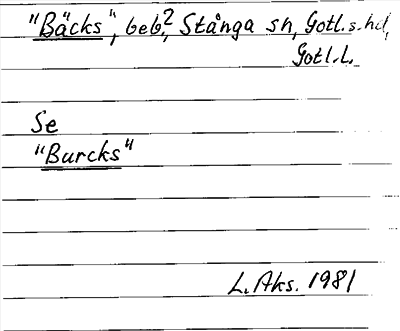 "Bäcks", beb.?, Stånga sn, Gotl.s.hd,
Gotl.L.
Se
"Burcks"
L.Aks. 1981